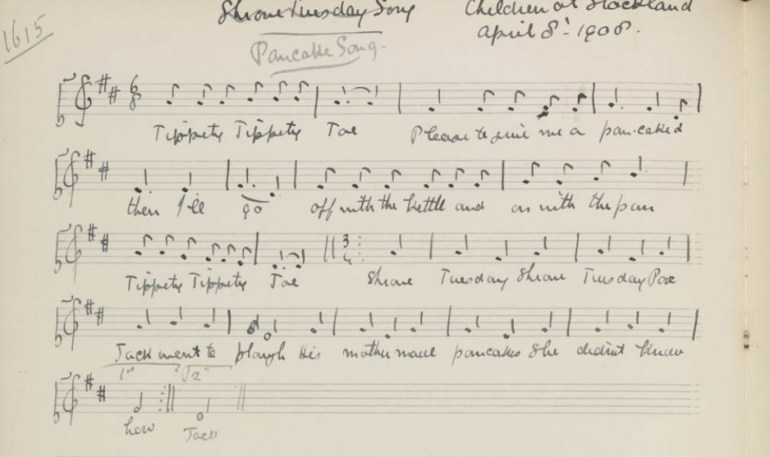 1615
Shrove Tuesday Song
Children at Stockland
April 8th 1908.
Pancake Song.
Tippety Tippety Toe Please to give me a pancake &
then I'll go off with the kettle and on with the pan
Tippety Tippety Toe Shrove Tuesday Shrove Tuesday Poor
Jack went to plough His mother made pancakes She didn't know
1st 2
how Jack